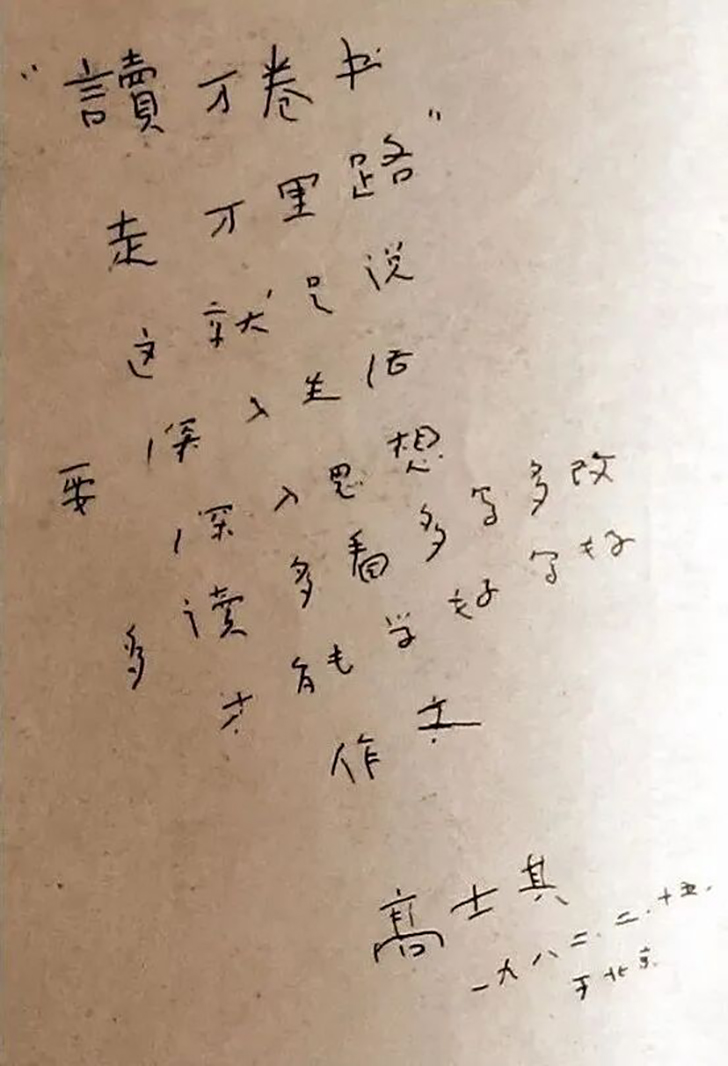 “讀万卷书
走万里路”
这就是说
要深入生活
深入思想
多读多看多写多改
才能学好写好
作文
高士其
一九八二.二.十五.
于北京